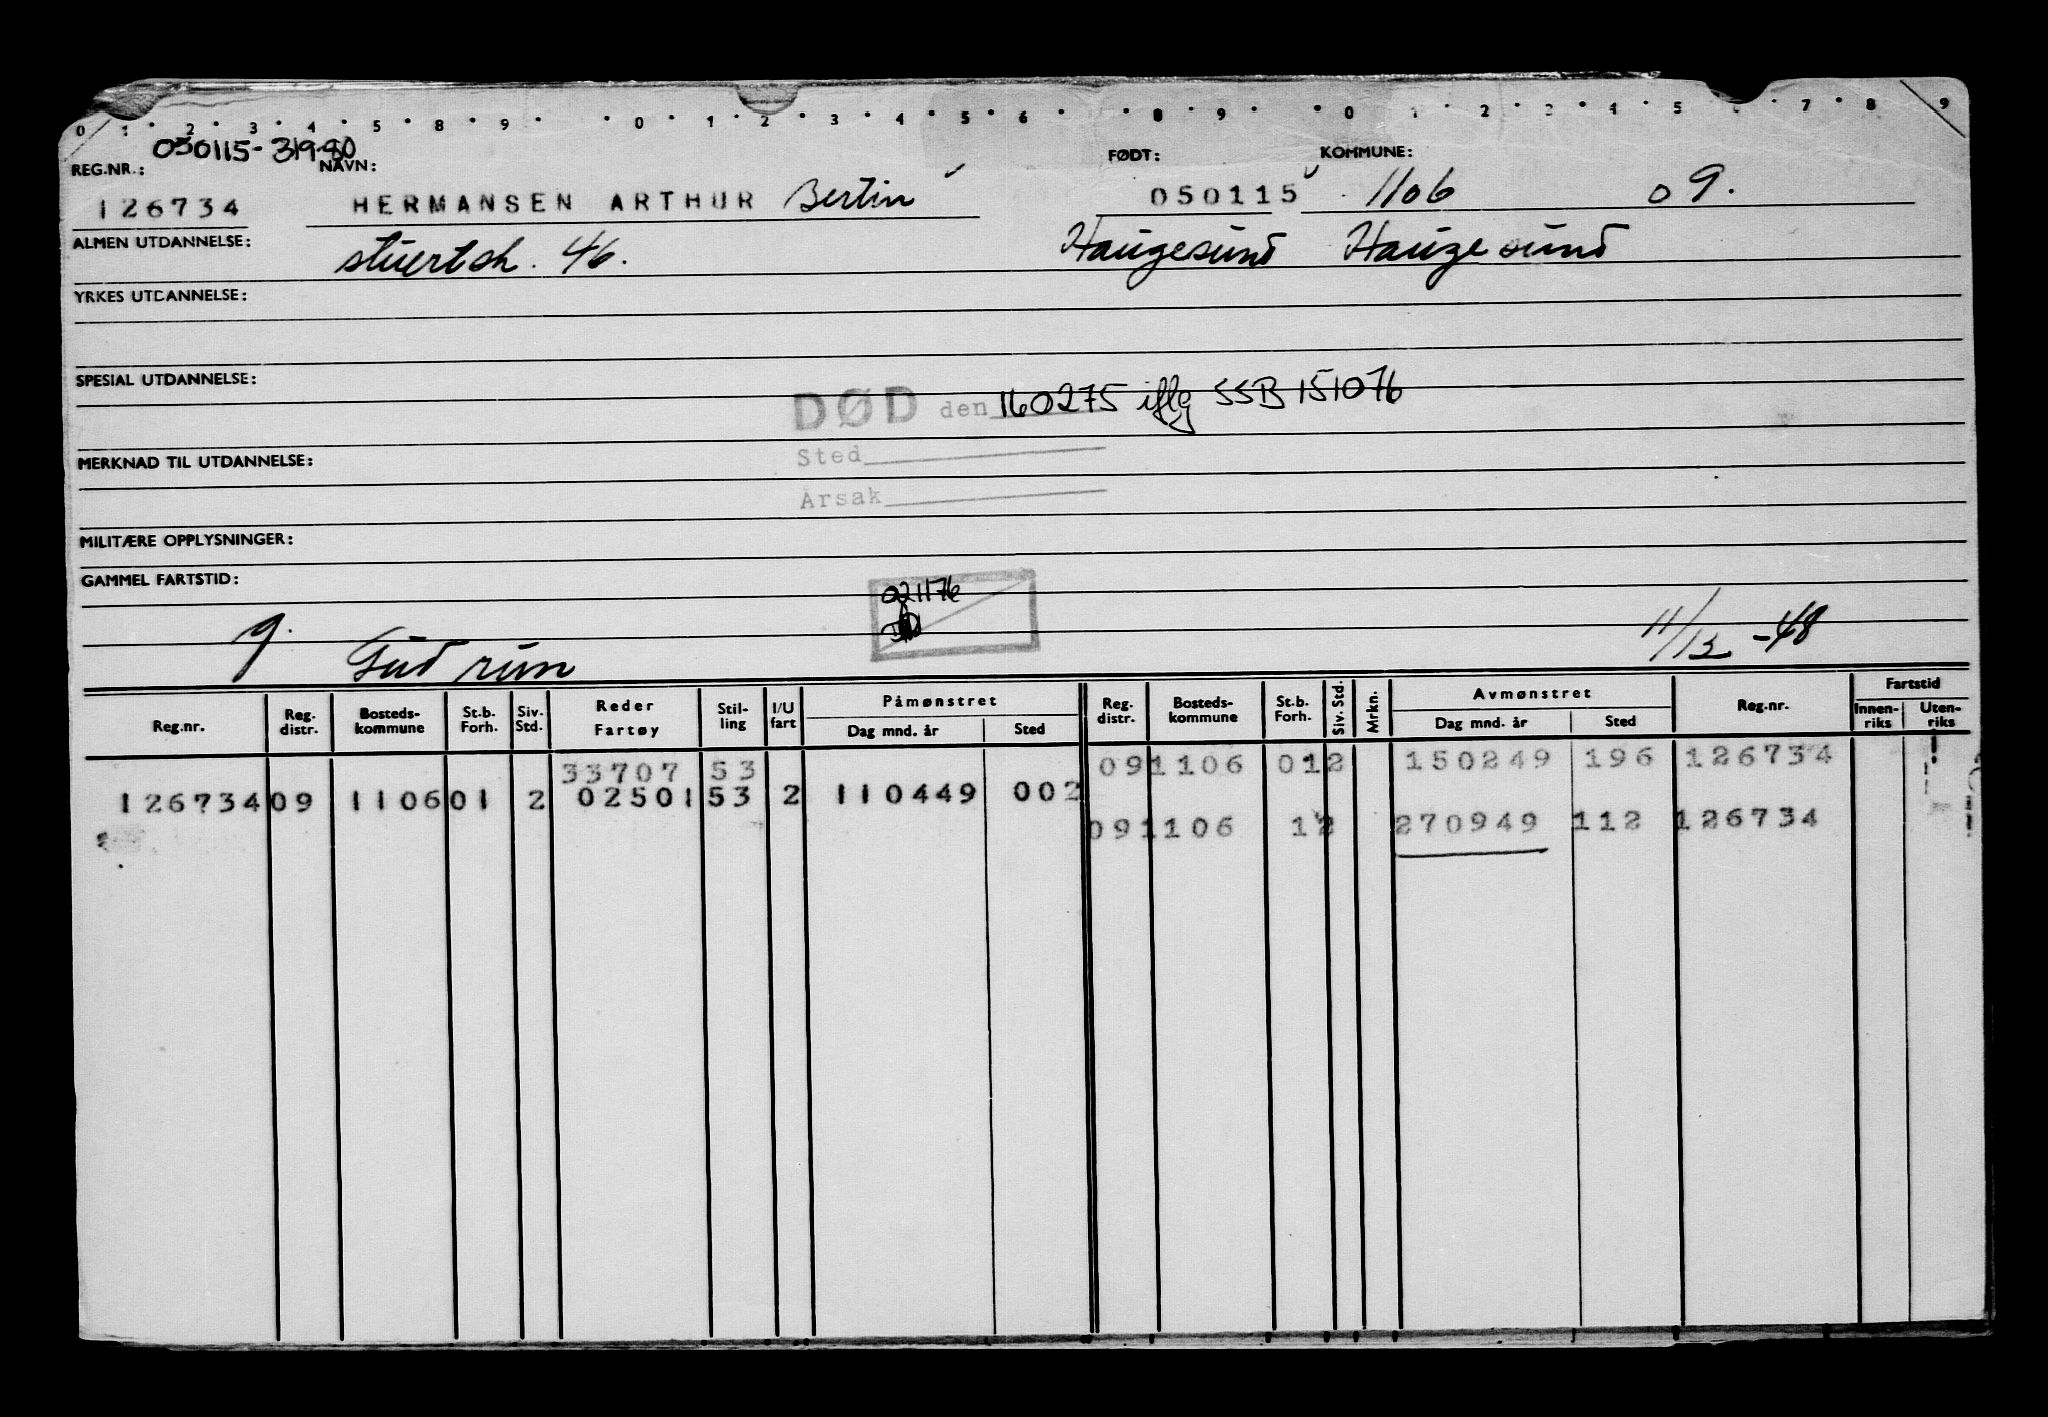 0 1 2 3 4 5 8 9 0 1 2 3 4 5 6 8 9 0 1 2 3 4 5 7 8 9
050115-319-80
REG.NR.: NAVN: FØDT: KOMMUNE:
126734 HERMANSEN ARTHUR Bertin 050115 1106 09.
ALMEN UTDANNELSE: stuertsk. 46. Haugesund Haugesund
YRKES UTDANNELSE:
SPESIAL UTDANNELSE:
DØD den 160275 iflg SSB 151076
MERKNAD TIL UTDANNELSE: Sted
Årsak
MILITÆRE OPPLYSNINGER:
GAMMEL FARTSTID:
021176
9. Gudrun 11/12-48
Reg.nr. Reg. distr. Bosteds-kommune St.b. Forh. Siv. Std. Reder Fartøy Stil-ling I/U fart Påmønstret Dag mnd. år Sted Reg. distr. Bosteds-kommune St.b. Forh. Siv. Std. Mrkn. Avmønstret Dag mnd. år Sted Reg.nr. Fartstid Innen-riks Uten-riks
33707 53 09 1106 01 2 150249 196 126734
126734 09 1106 01 2 02501 53 2 110449 002
09 1106 1 2 270949 112 126734